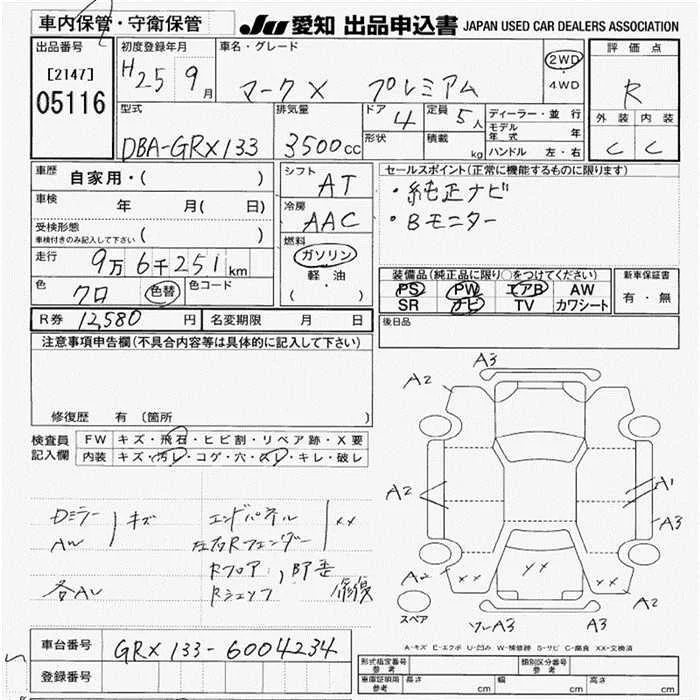 車内保管・守衛保管
JU 愛知 出品申込書 JAPAN USED CAR DEALERS ASSOCIATION
出品番号
[2147]
05116
初度登録年月
H25 9月
車名・グレード
マークX プレミアム
2WD
・
4WD
評価点
R
外装 内装
C C
型式
DBA-GRX133
排気量
3500cc
ドア
4
定員
5人
形状
積載
kg
ディーラー・並行
モデル年式 年
ハンドル 左・右
車歴
自家用・( )
車検
年 月( 日)
受検形態
車検付きのみ記入して下さい ( )
走行
9万6千251km
色
クロ
色替
色コード
シフト
AT
冷房
AAC
燃料
ガソリン
軽・油
( )
セールスポイント(正常に機能するものに限ります)
・純正ナビ
・Bモニター
装備品(純正品に限り○をつけてください)
PS PW エアB AW
SR ナビ TV カワシート
新車保証書
有・無
R券 12,580円
名変期限 月 日
後日品
注意事項申告欄(不具合内容等は具体的に記入して下さい)
修復歴 有 〔箇所 〕
検査員
記入欄
FW キズ・飛石・ヒビ割・リペア跡・X要
内装 キズ・汚レ・コゲ・穴・スレ・キレ・破レ
Dミラー
AW
キズ
各AU
エンドパネル
左右Rフェンダー
XX
Rフロア
Rシェルフ
修復
A3
A2
A2
A1
A3
A2
XX
XX
XX
A2
スペア
A3
A3
A-キズ E-エクボ U-凹み W-補修跡 S-サビ C-腐食 XX-交換済
車台番号
GRX133-6004234
登録番号
型式指定番号
参考
類別区分番号
参考
車庫証明用
参考
長さ cm
幅 cm
高さ cm